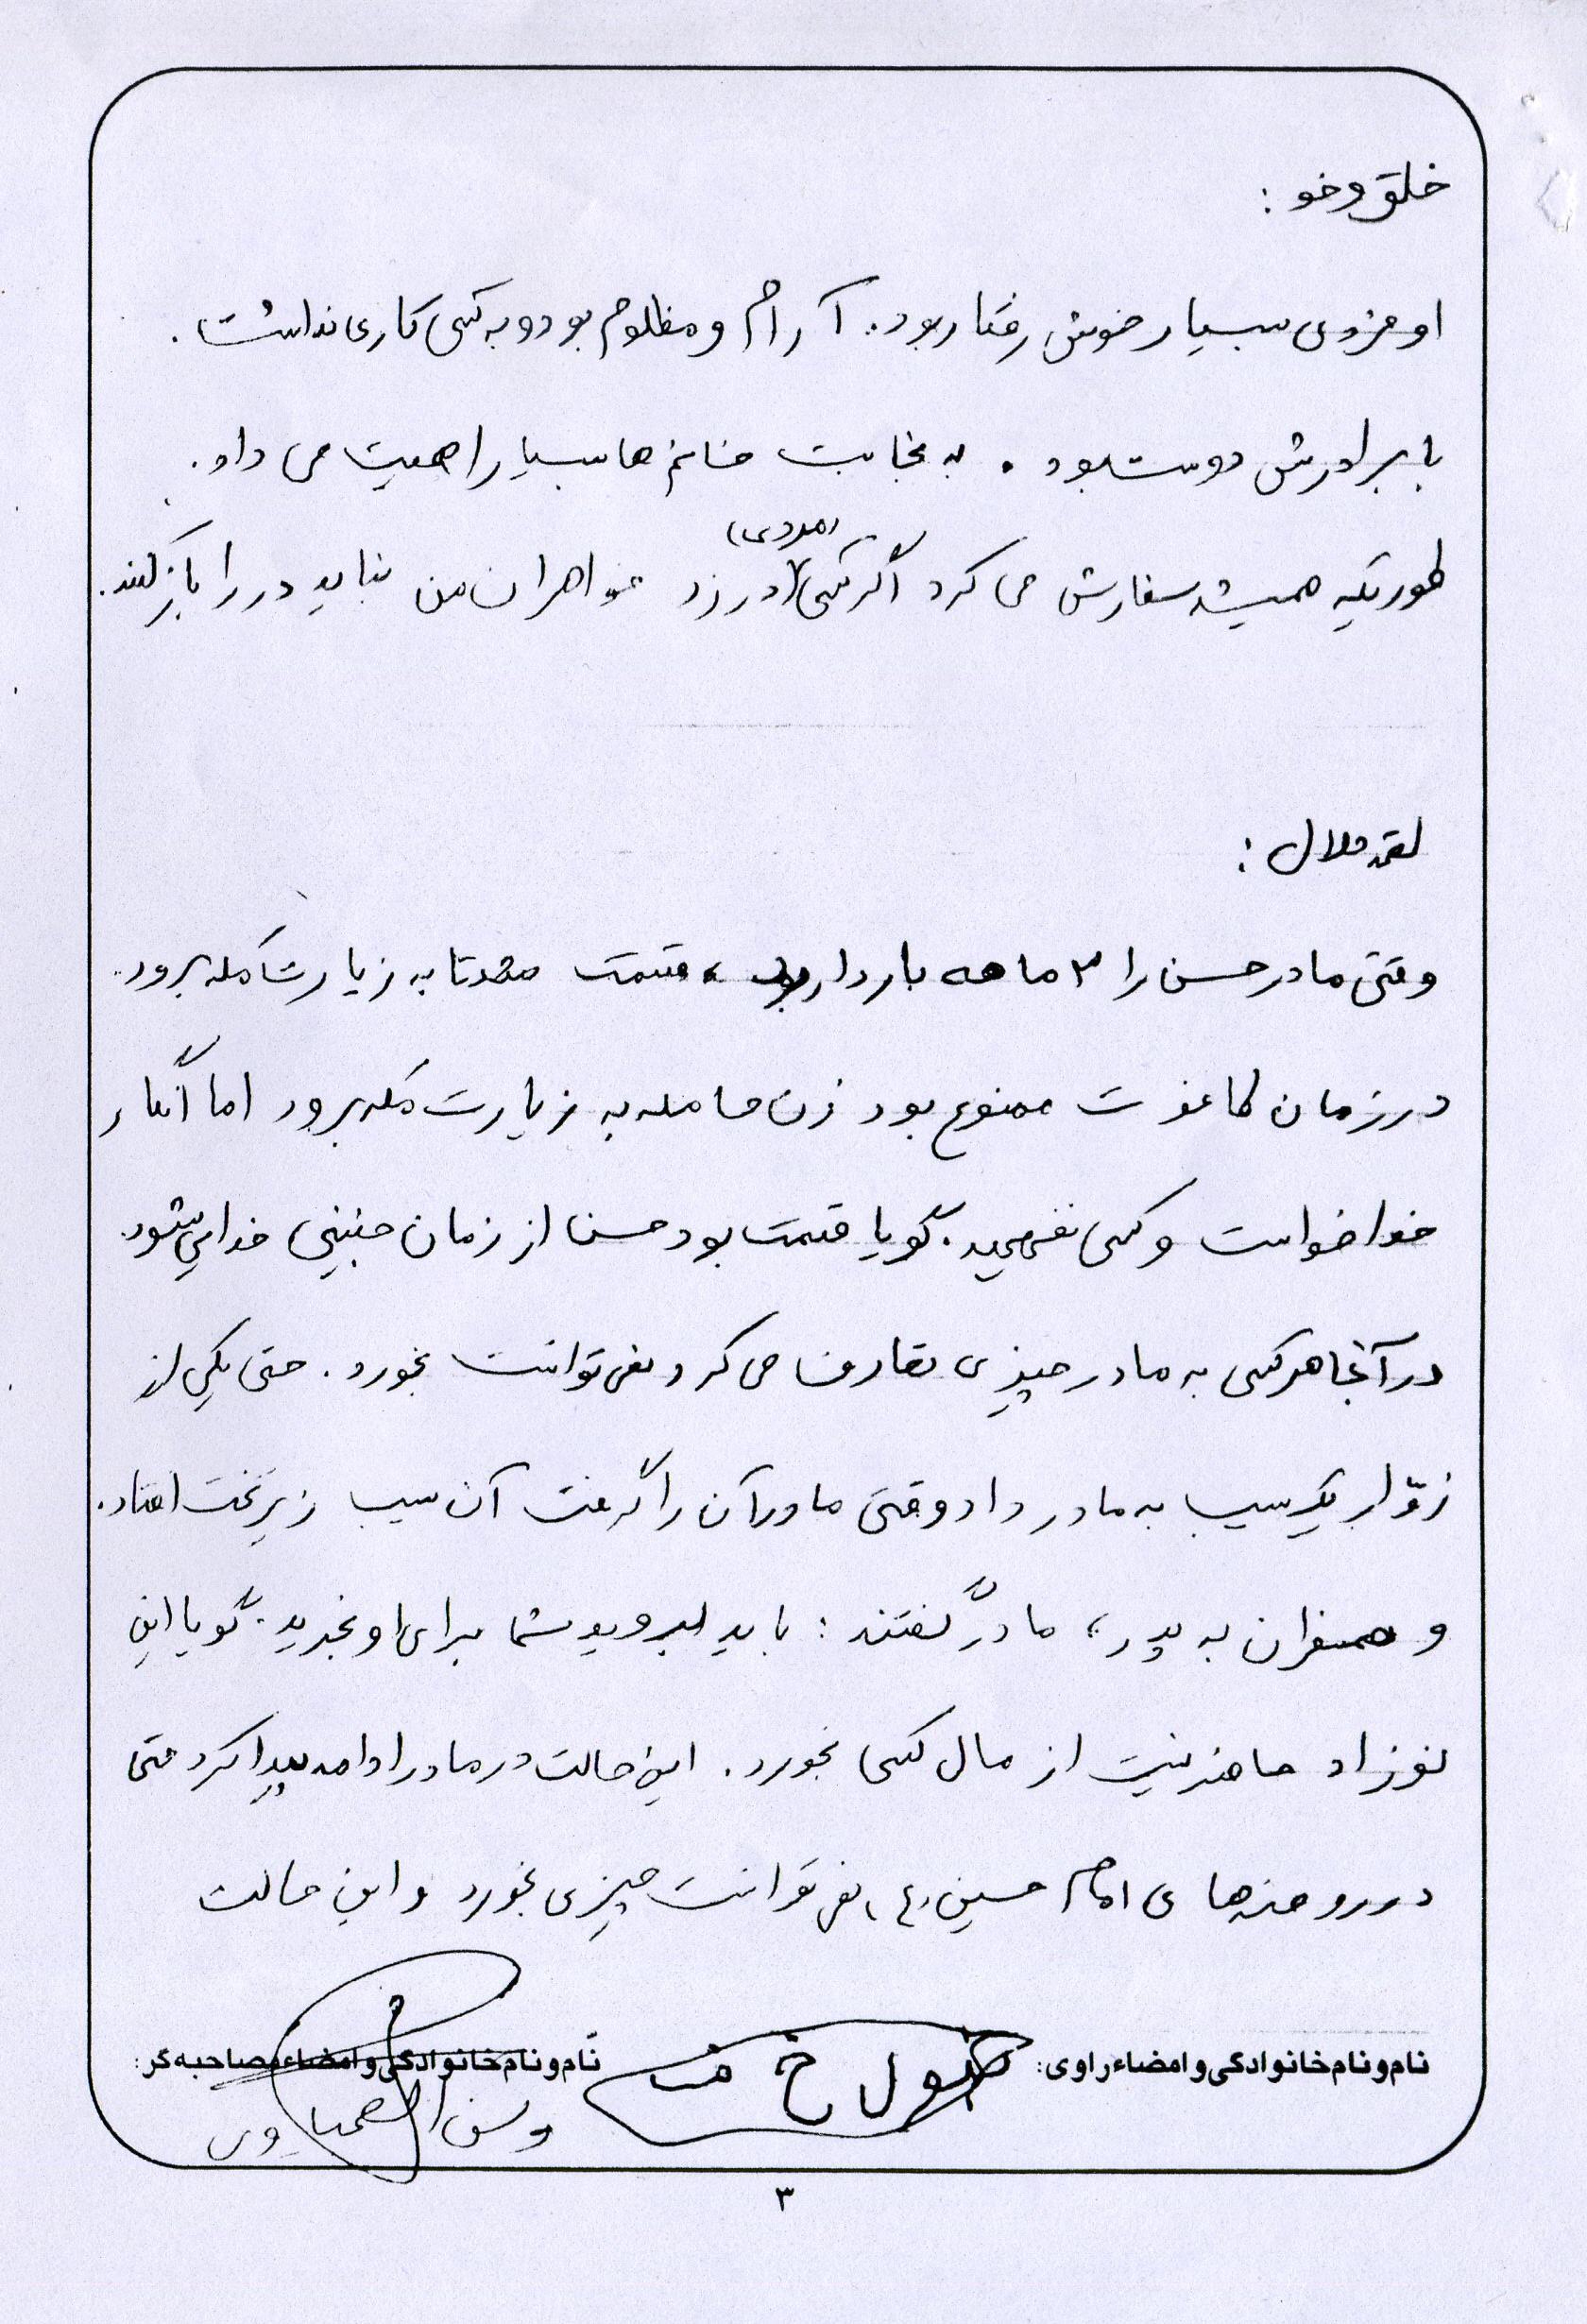 خلق و خو :
او فردی بسیار خوش رفتار بود. آرام و مظلوم بود و به کسی کاری نداشت.
با برادرش دوست بود. به نجابت خانم ها بسیار اهمیت می داد.
(مردی)
طوریکه همیشه سفارش می کرد اگر کسی در زد خواهران من نباید در را باز کنند.
لقمه حلال :
وقتی مادر حسن را ۳ ماهه باردار بود، قسمت شد تا به زیارت مکه برود.
در زمان طاغوت ممنوع بود زن حامله به زیارت مکه برود اما آنگار
خدا خواست و کسی نفهمید. گویا قسمت بود حسن از زمان جنینی خدایی شود
در آنجا هر کسی به مادر چیزی تعارف می کرد نمی توانست بخورد. حتی یکی از
زوّار یک سیب به مادر داد وقتی مادر آن را گرفت آن سیب زیر تخت افتاد.
و همسفران به پدر، مادر گفتند : باید بروید شما برای او بخرید. گویا این
نوزاد حاضر نیست از مال کسی بخورد. این حالت در مادر ادامه پیدا کرد حتی
در روضه های امام حسین (ع) نمی توانست چیزی بخورد و این حالت
نام و نام خانوادگی و امضاء راوی:
نام و نام خانوادگی و امضاء مصاحبه گر:
۳